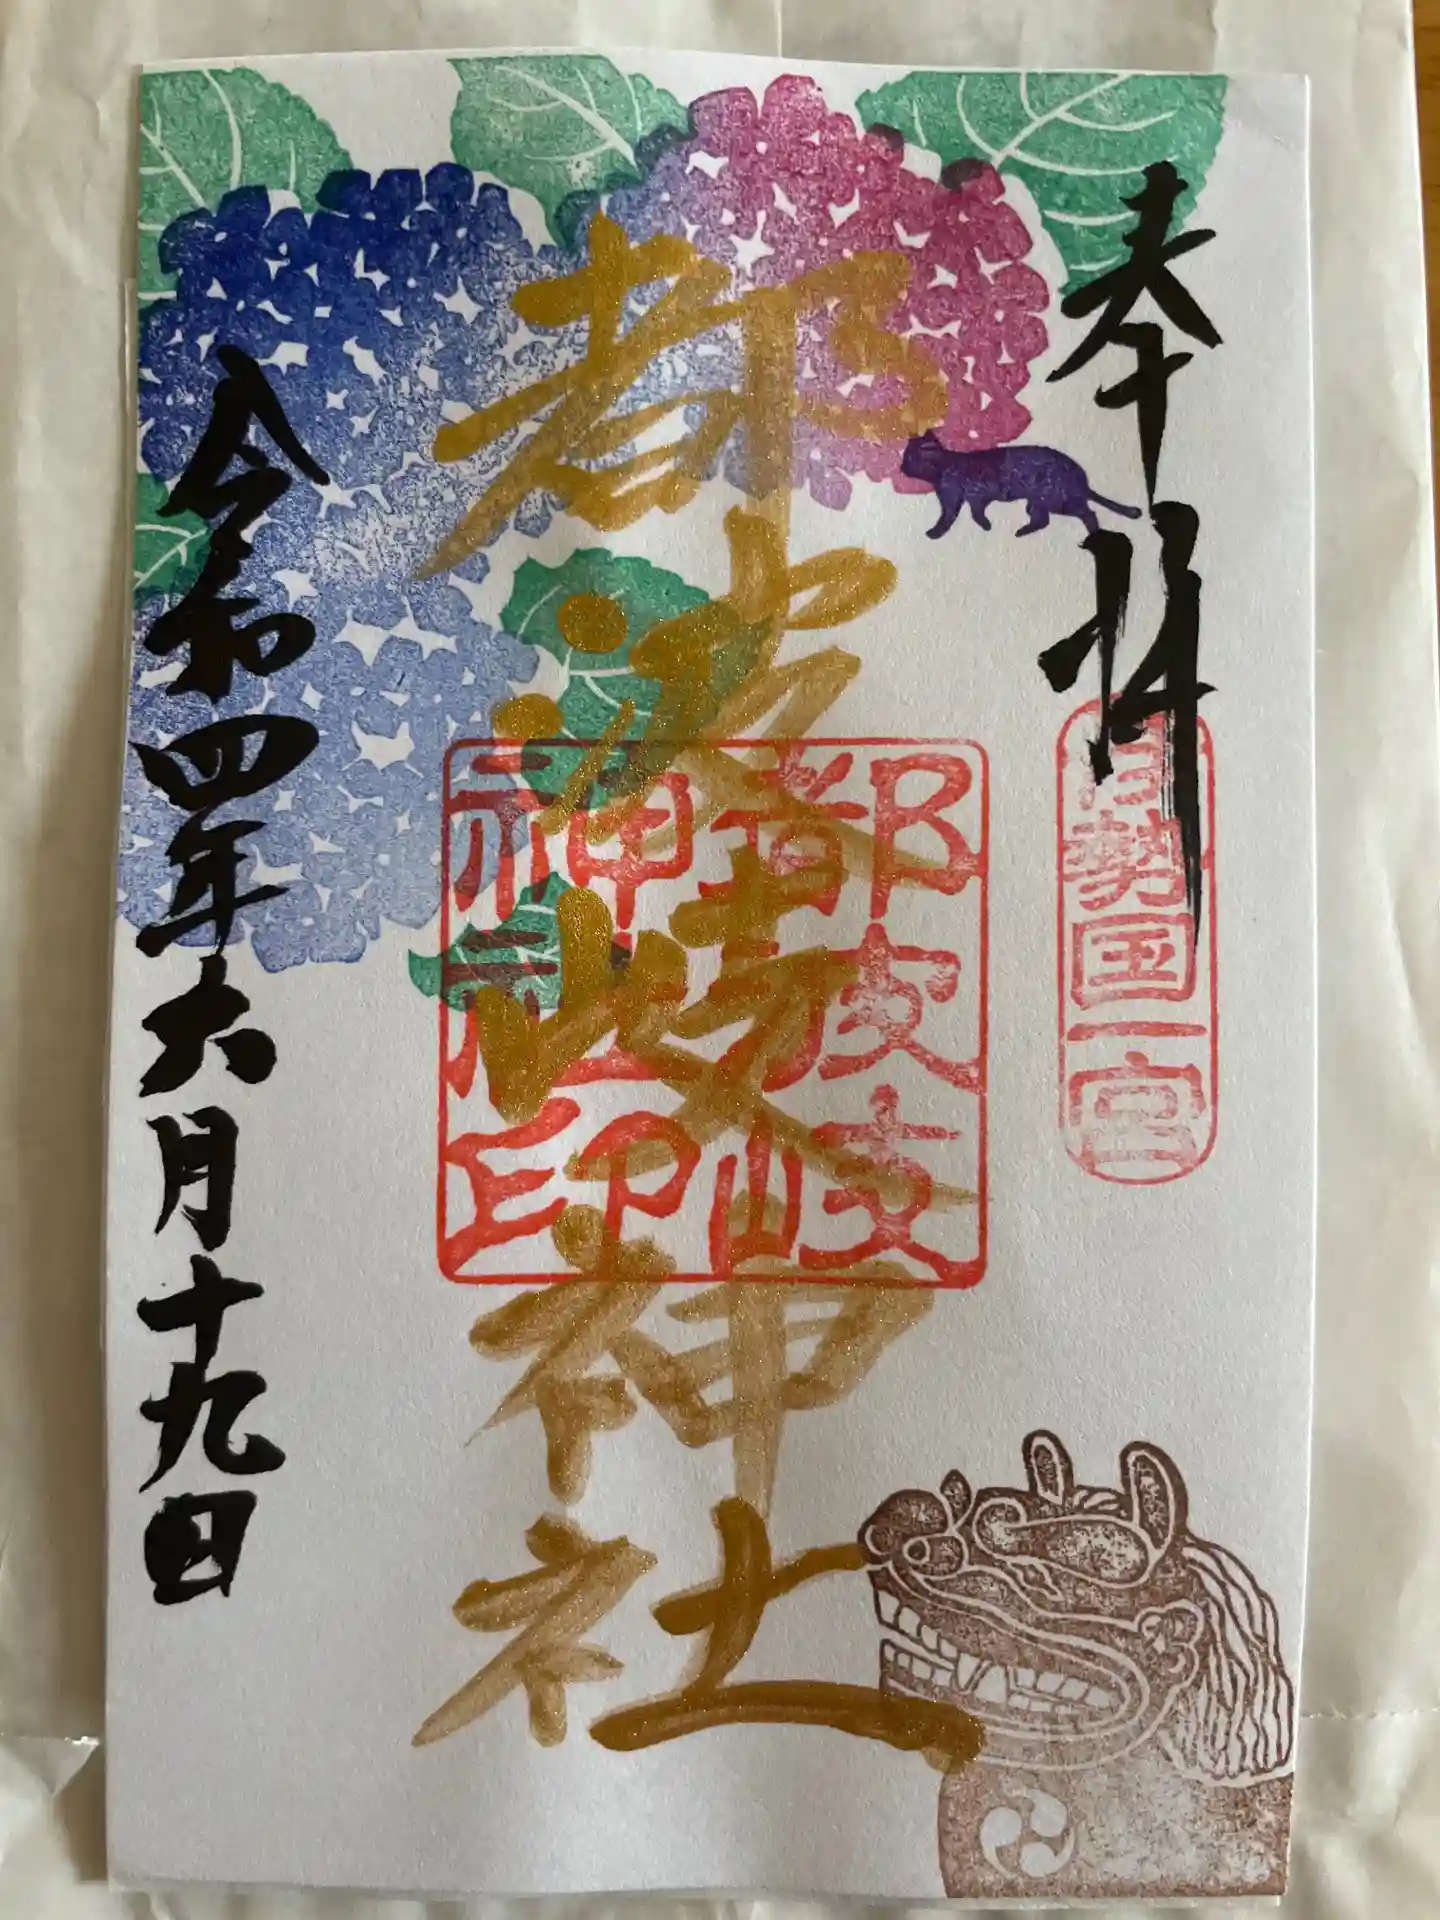 奉拝
伊勢国一宮
都波岐神社
都波岐
神社印
令和四年六月十九日